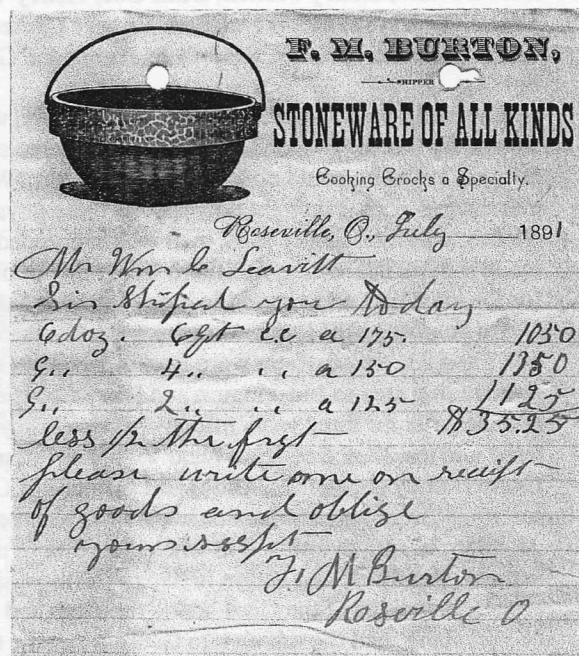 F. M. BURTON,
SHIPPER
STONEWARE OF ALL KINDS
Cooking Crocks a Specialty.
Roseville, O., July 1891
Mr Wm C Leavitt
Sir Shiped you today
6 doz. 6 qt c.c a 175. 1050
9 ,, 4 ,, ,, a 150 1350
9 ,, 2 ,, ,, a 125 1125
less 1/2 the frgt $35.25
please write me on reciept
of goods and oblige
yours respt
F. M Burton
Roseville O